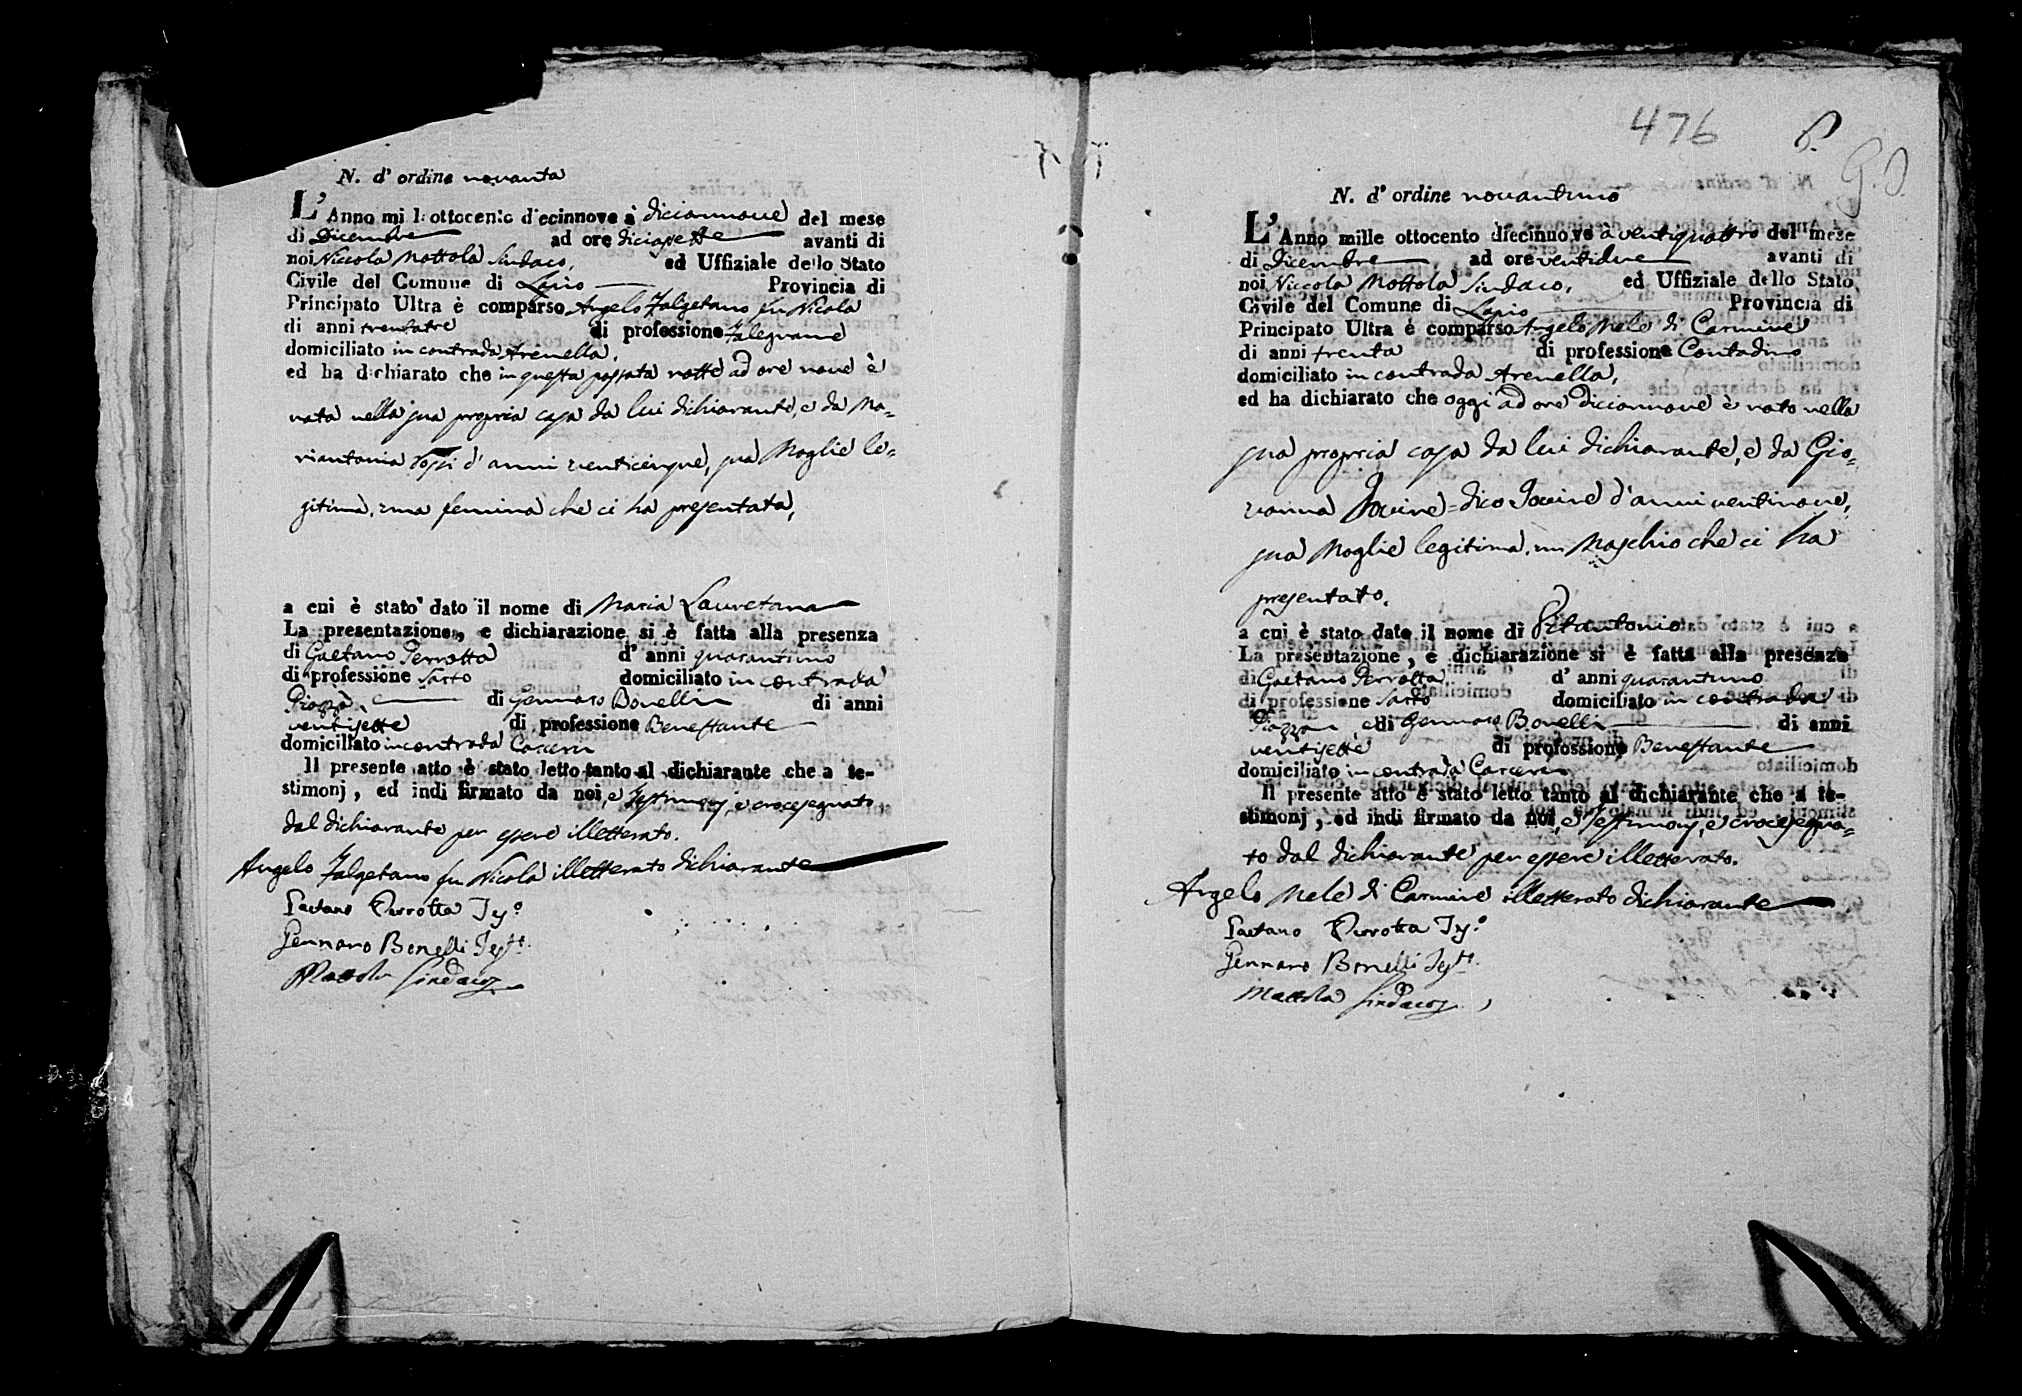 N. d' ordine novanta
L' Anno mille ottocento diecinnove à diciannove del mese
di Dicembre ad ore diciasette avanti di
noi Niccola Mottola Sindaco, ed Uffiziale dello Stato
Civile del Comune di Lapio Provincia di
Principato Ultra è comparso Angelo Falgetano fu Nicola
di anni trentatre di professione Falegname
domiciliato in contrada Arenella,
ed ha dichiarato che in questa passata notte ad ore nove è
nata nella sua propria casa da lui dichiarante, e da Ma=
riantonia d' anni venticinque, sua Moglie le=
gitima, una femina che ci ha presentata,
a cui è stato dato il nome di Maria Lauretana
La presentazione, e dichiarazione si è fatta alla presenza
di Gaetano Perrotta d' anni quarantuno
di professione Sarto domiciliato in contrada
Piazza di Gennaro Bonelli di anni
ventisette di professione Benestante
domiciliato in contrada Carcera
Il presente atto è stato letto tanto al dichiarante che a te-
stimonj, ed indi firmato da noi, e Testimonj, e crocesegnato
dal dichiarante per essere illetterato.
Angelo Falgetano fu Nicola illetterato dichiarante
Gaetano Perrotta Tes.o
Gennaro Bonelli Test.
Mottola Sindaco
476
N. d' ordine novantuno
L' Anno mille ottocento diecinnove à ventiquattro del mese
di Dicembre ad ore ventidue avanti di
noi Niccola Mottola Sindaco, ed Uffiziale dello Stato
Civile del Comune di Lapio Provincia di
Principato Ultra è comparso Angelo Mele di Carmine
di anni trenta di professione Contadino
domiciliato in contrada Arenella,
ed ha dichiarato che oggi ad ore diciannove è nato nella
sua propria casa da lui dichiarante, e da Gio=
vanna Iovine=dico Iovine d'anni ventinove,
sua Moglie legitima, un Maschio che ci ha
presentato,
a cui è stato dato il nome di Vitantonio
La presentazione, e dichiarazione si è fatta alla presenza
di Gaetano Perrotta d' anni quarantuno
di professione Sarto domiciliato in contrada
Piazza e di Gennaro Bonelli di anni
ventisette di professione Benestante
domiciliato in contrada Carcera
Il presente atto è stato letto tanto al dichiarante che a te-
stimonj, ed indi firmato da noi, e Testimonj, e crocesegna=
to dal dichiarante per essere illetterato.
Angelo Mele di Carmine illetterato dichiarante
Gaetano Perrotta Tes.o
Gennaro Bonelli Test.
Mottola Sindaco